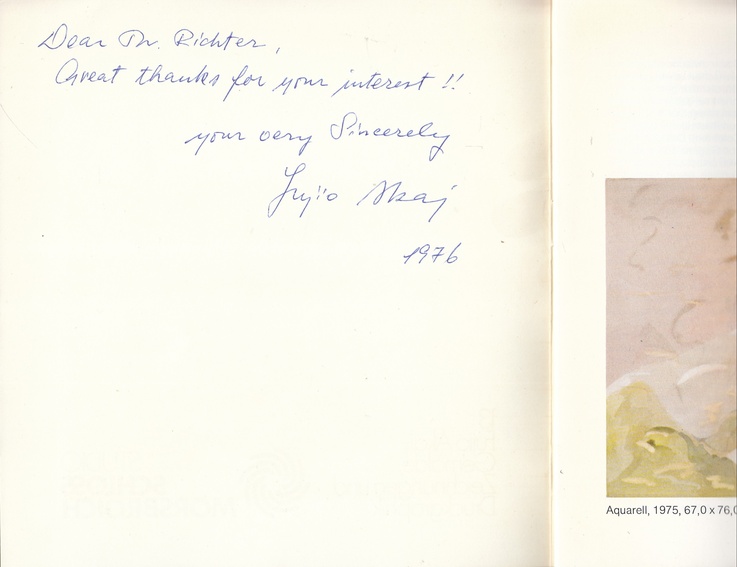 Dear Th. Richter,
Great thanks for your interest !!
your very Sincerely
Fujio Akai
1976
Aquarell, 1975, 67,0 x 76,0